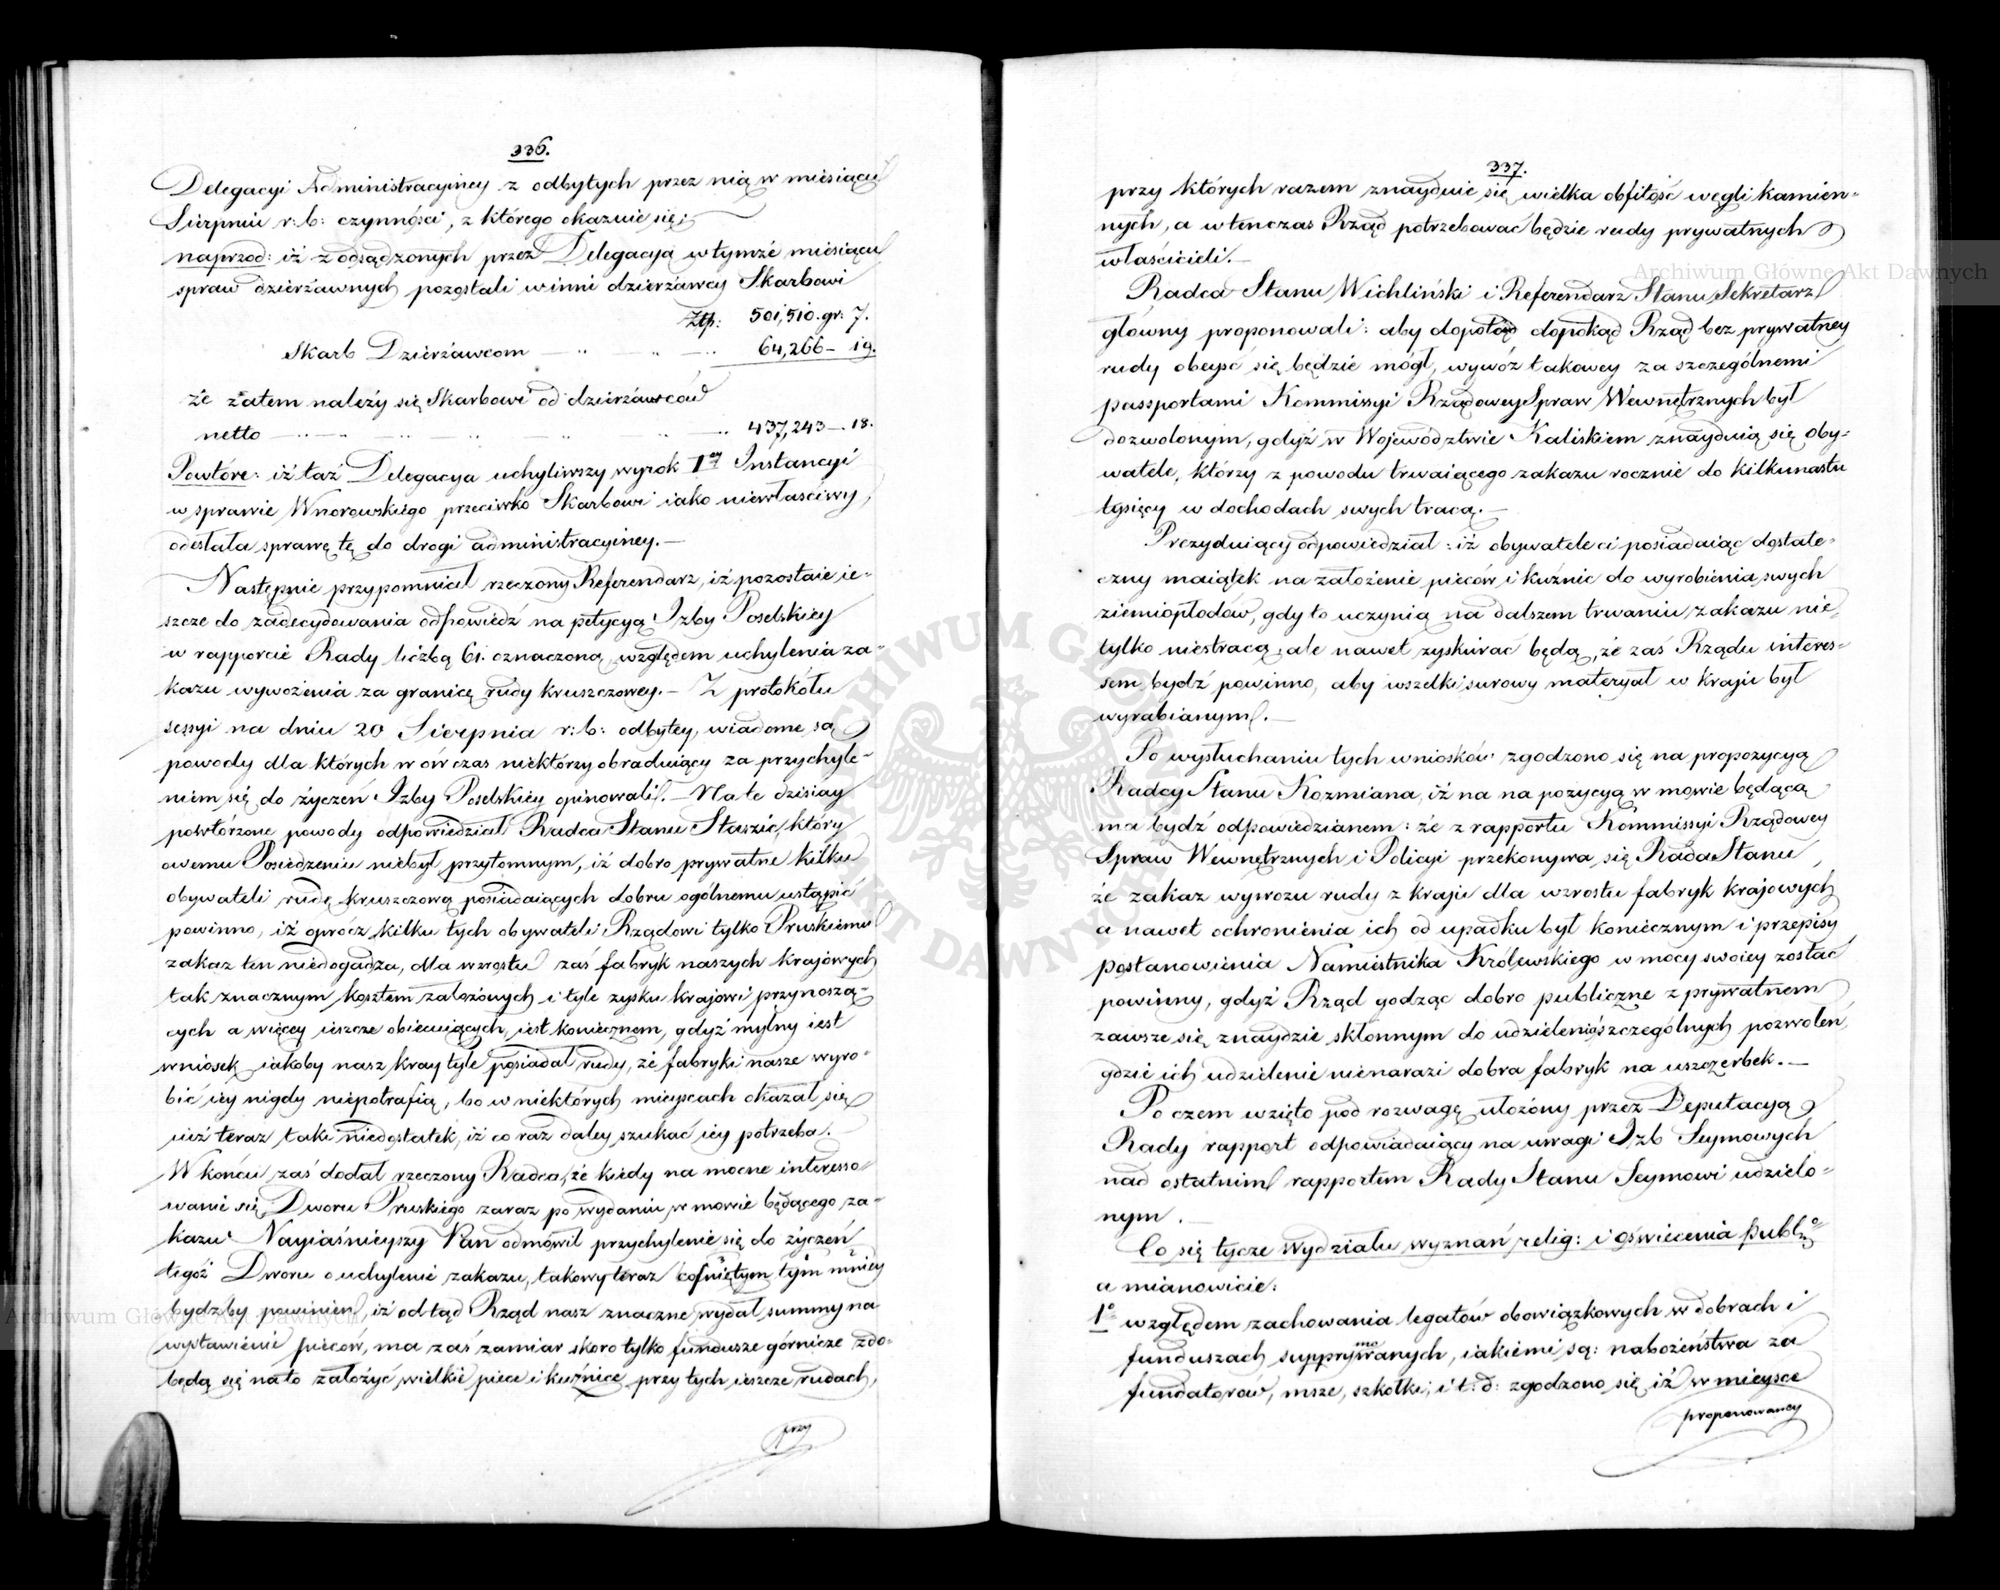 336.
Delegacyi Administracyiney z odbytych przez nią w miesiącu
Sierpniu r: b: czynności, z którego okazuie się:
naprzod: iż z odsądzonych przez Delegacyą w tymże miesiącu
spraw dzierżawnych pozostali winni dzierżawcy Skarbowi
Złp: 501,510. gr: 7.
Skarb Dzierżawcom 64,266 – 19.
że zatem należy się Skarbowi od dzierżawców
netto 437,243 – 18.
Powtóre: iż taż Delegacya uchyliwszy wyrok 1ey Instancyi
w sprawie Wnorowskiego przeciwko Skarbowi iako niewłaściwy,
odesłała sprawę tę do drogi administracyiney. –
Następnie przypomniał rzeczony Referendarz, iż pozostaie ie-
szcze do zadecydowania odpowiedź na petycyą Izby Poselskiey
w rapporcie Rady liczbą 61. oznaczoną względem uchylenia za-
kazu wywożenia za granicę rudy kruszczowey. – Z protokółu
sessyi na dniu 20 Sierpnia r: b: odbytey, wiadome są
powody dla których wówczas niektórzy obraduiący za przychyle-
niem się do życzeń Izby Poselskiéy opinowali. – Na te dzisiay
powtórzone powody odpowiedział Radca Stanu Staszic, który
owemu Posiedzeniu niebył przytomnym, iż dobro prywatne kilku
obywateli rudę kruszczową posiadaiących dobru ogólnemu ustąpić
powinno, iż oprócz kilku tych obywateli Rządowi tylko Pruskiemu
zakaz ten niedogadza, dla wzrostu zaś fabryk naszych krajowych
tak znacznym kosztem założonych i tyle zysku krajowi przynoszą-
cych a więcey ieszcze obiecuiących, iest koniecznem, gdyż mylny iest
wniosek iakoby nasz kray tyle posiadał rudy, że fabryki nasze wyro-
bić iéy nigdy niepotrafią, bo w niektórych mieyscach okazał się
iuż teraz taki niedostatek, iż co raz daley szukać iéy potrzeba.
W końcu zaś dodał rzeczony Radca, że kiedy na mocne interesso-
wanie się Dworu Pruskiego zaraz po wydaniu w mowie będącego za-
kazu Nayiaśnieyszy Pan odmówił przychylenie się do życzeń
tegoż Dworu o uchylenie zakazu, takowy teraz cofniętym tym mniey
bydźby powinien, iż odtąd Rząd nasz znaczne wydał summy na
wystawienie pieców, ma zaś zamiar skoro tylko fundusze górnicze zdo-
będą się na to założyć wielkie piece i kuźnice przy tych ieszcze rudach,
przy
337.
przy których razem znayduie się wielka obfitość węgli kamien-
nych, a w tenczas Rząd potrzebować będzie rudy prywatnych
właścicieli. –
Radca Stanu Wichliński i Referendarz Stanu Sekretarz
główny proponowali: aby dopotąd dopokąd Rząd bez prywatney
rudy obeyść się będzie mógł, wywóz takowey za szczególnemi
passportami Kommissyi Rządowey Spraw Wewnętrznych był
dozwolonym, gdyż w Województwie Kaliskiem znayduią się oby-
watele, którzy z powodu trwaiącego zakazu rocznie do kilkunastu
tysięcy w dochodach swych tracą. –
Prezyduiący odpowiedział: iż obywatele ci posiadaiąc dostate-
czny maiątek na założenie pieców i kuźnic do wyrobienia swych
ziemiopłodów, gdy to uczynią na dalszem trwaniu zakazu nie
tylko niestracą, ale nawet zyskiwać będą, że zaś Rządu interes-
sem bydź powinno, aby wszelki surowy materyał w kraju był
wyrabianym. –
Po wysłuchaniu tych wniosków zgodzono się na propozycyą
Radcy Stanu Kozmiana, iż na na pozycyą w mowie będącą
ma bydź odpowiedzianem: że z rapportu Kommissyi Rządowey
Spraw Wewnętrznych i Policyi przekonywa się Rada Stanu,
że zakaz wywozu rudy z kraju dla wzrostu fabryk krajowych
a nawet ochronienia ich od upadku był koniecznym i przepisy
postanowienia Namiestnika Królewskiego w mocy swoiey zostać
powinny, gdyż Rząd godząc dobro publiczne z prywatnem
zawsze się znaydzie skłonnym do udzielenia szczególnych pozwoleń,
gdzie ich udzielenie nienarazi dobra fabryk na uszczerbek. –
Po czem wzięto pod rozwagę ułożony przez Deputacyą
Rady rapport odpowiadaiący na uwagi Izb Seymowych
nad ostatnim rapportem Rady Stanu Seymowi udzielo-
nym. –
Co się tycze Wydziału wyznań relig: i oświecenia publ:
a mianowicie:
1o względem zachowania legatów obowiązkowych w dobrach i
funduszach supprymowanych, iakiemi są: nabożeństwa za
fundatorów, msze, szkółki, i t: d: zgodzono się iż w mieysce
proponowaney
Archiwum Główne Akt Dawnych
Archiwum Główne Akt Dawnych
ARCHIWUM GŁÓWNE AKT DAWNYCH